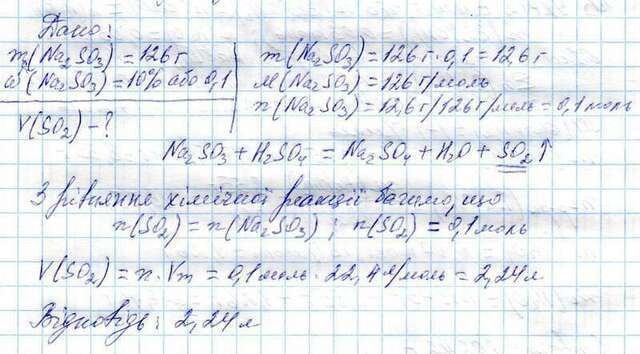 Дано:
m(Na₂SO₃) = 126 г
ω(Na₂SO₃) = 10% або 0,1
V(SO₂) – ?
m(Na₂SO₃) = 126 г · 0,1 = 12,6 г
M(Na₂SO₃) = 126 г/моль
n(Na₂SO₃) = 12,6 г/126 г/моль = 0,1 моль
Na₂SO₃ + H₂SO₄ = Na₂SO₄ + H₂O + SO₂↑
З рівняння хімічної реакції бачимо, що
n(SO₂) = n(Na₂SO₃) ; n(SO₂) = 0,1 моль
V(SO₂) = n · Vm = 0,1 моль · 22,4 л/моль = 2,24 л
Відповідь: 2,24 л